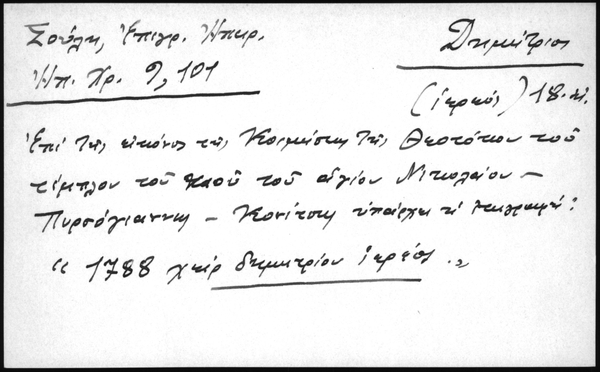 Σούλη, Ἐπιγρ. Ἠπειρ.
Ἠπ. Χρ. 9, 101
Δημήτριος
(ἱερεύς) 18. αἰ.
Ἐπί τῆς εἰκόνος τῆς Κοιμήσεως τῆς Θεοτόκου τοῦ
τέμπλου τοῦ ναοῦ τοῦ ἁγίου Νικολάου –
Πυρσόγιαννης – Κονίτσης ὑπάρχει ἡ ἐπιγραφή:
“ 1788 χείρ δημητρίου ἱερέος „